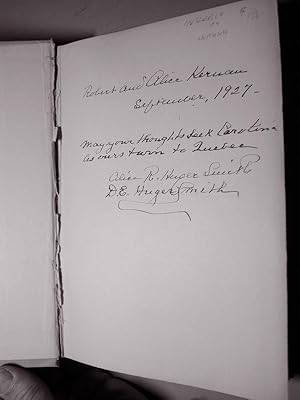 INSCRIBED
BY
AUTHORS
Robert and Alice Kernan
September, 1927-
May your thoughts seek Carolina
as ours turn to Quebec
Alice R. Huger Smith
D.E. Huger Smith